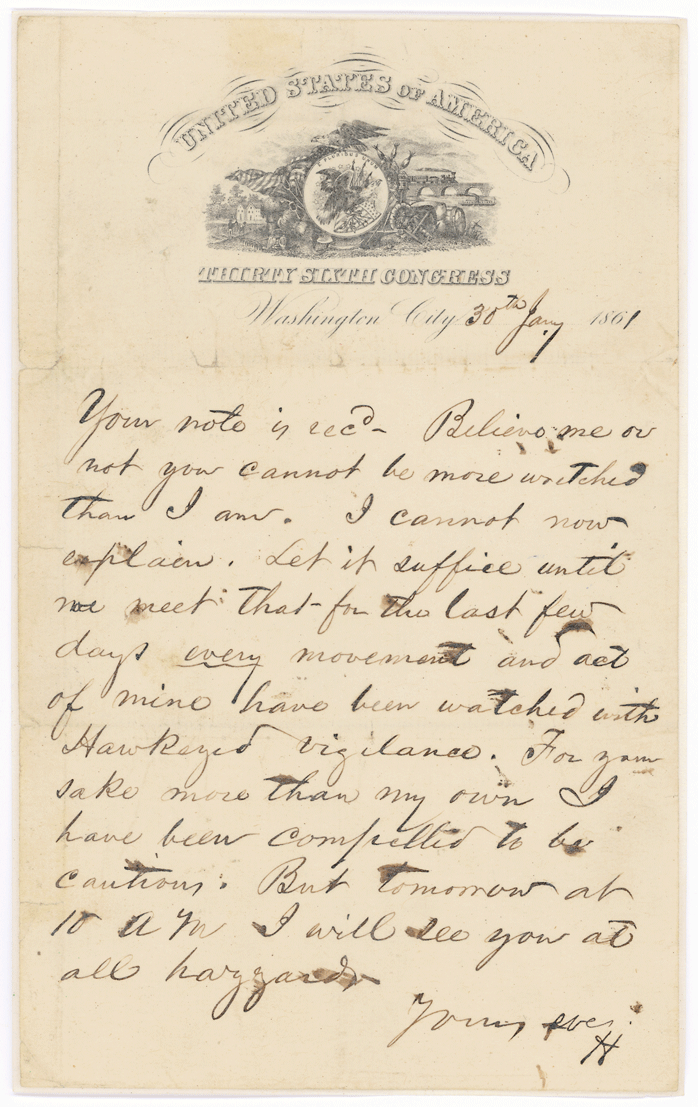 UNITED STATES OF AMERICA
E PLURIBUS UNUM
THIRTY SIXTH CONGRESS
Washington City 30th Jany 1861
Your note is recd - Believe me or
not you cannot be more wretched
than I am. I cannot now
explain. Let it suffice until
we meet that for the last few
days every movement and act
of mine have been watched with
Hawkeyed vigilance. For your
sake more than my own I
have been compelled to be
cautious. But tomorrow at
10 A M I will see you at
all hazzards
Yours ever
H